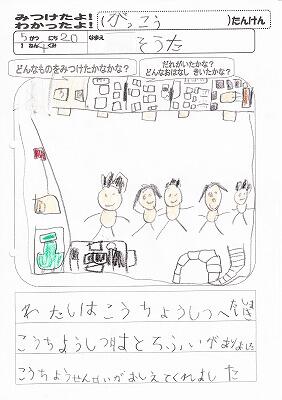 みつけたよ!
わかったよ!
(がっこう)たんけん
5がつ 20にち
なまえ
ねん くみ
そうた
どんなものをみつけたかなかな?
だれがいたかな?
どんなおはなし きいたかな?
わたしはこうちょうしつへ
こうちょうしつはとろふぃがありました
こうちょうせんせいがおしえてくれました